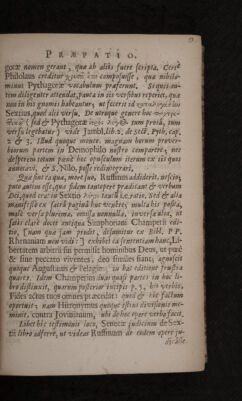 PRÆFATIO.
goræ nomen gerant, qua ab aliis fuere scripta. Certè
Philolaus creditur composuisse, qua nihilo-
minus Pythagoræ vocabulum præferant. Siquis au-
tem diligenter attendat, pauca in iis versibus reperiet, qua
non in his gnomis habeantur, ut fecerit id
Sextius, quod alii versu. De utroque genere hoc
(sed & Pythagoræ tum prosâ, tum
versu legebatur) vide Jambl. lib. 2. de Sect. Pyth. cap.
2 & 3. Illud quoque monere, magnam horum prover-
biorum partem in Demophilo nostro comparere, nec
desperem totum pænè hoc opusculum iterum ex iis quos
annotavi, & S. Nilo, posse redintegrari.
Qua sint ea qua, more suo, Ruffinus addiderit, nescio;
puto autem esse, qua fidem tantopere prædicant & verbum
Dei, quod erat in Sextio tantùm i.e. ratio. Sed & alia
manifestò ex sacrâ paginâ huc venére; multa hic posita,
malè versa plurima, omissa nonnulla, inversa alia, ut
satis claré docet antiqua Symphoriani Champerii edi-
tio, [nam qua jam prodit, desumitur ex Bibl. PP.
Rhenanam non vidi:] exhibet ea sententiam hanc, Li-
bertatem arbitrii sui permisit hominibus Deus, ut puré
& sine peccato viventes, deo similes fiant; agnoscit
quoque Augustinus & Pelagius; in hac editione frustra
quæret. Idem Champerius in quasi partes in hoc li-
bro distinxit, quarum posterior incipit p. 3, his verbis,
Fides actus tuos omnes præcedat: quod & sic factum
oportuit, nam Hieronymus quoque istius divisionis me-
minit, contra Jovinianum, ubi de hoc opere verba facit.
Libet hîc testimonii loco, Senecæ judicium de Sex-
tii libro adferre, ut videas Ruffinum de eodem opere ju-